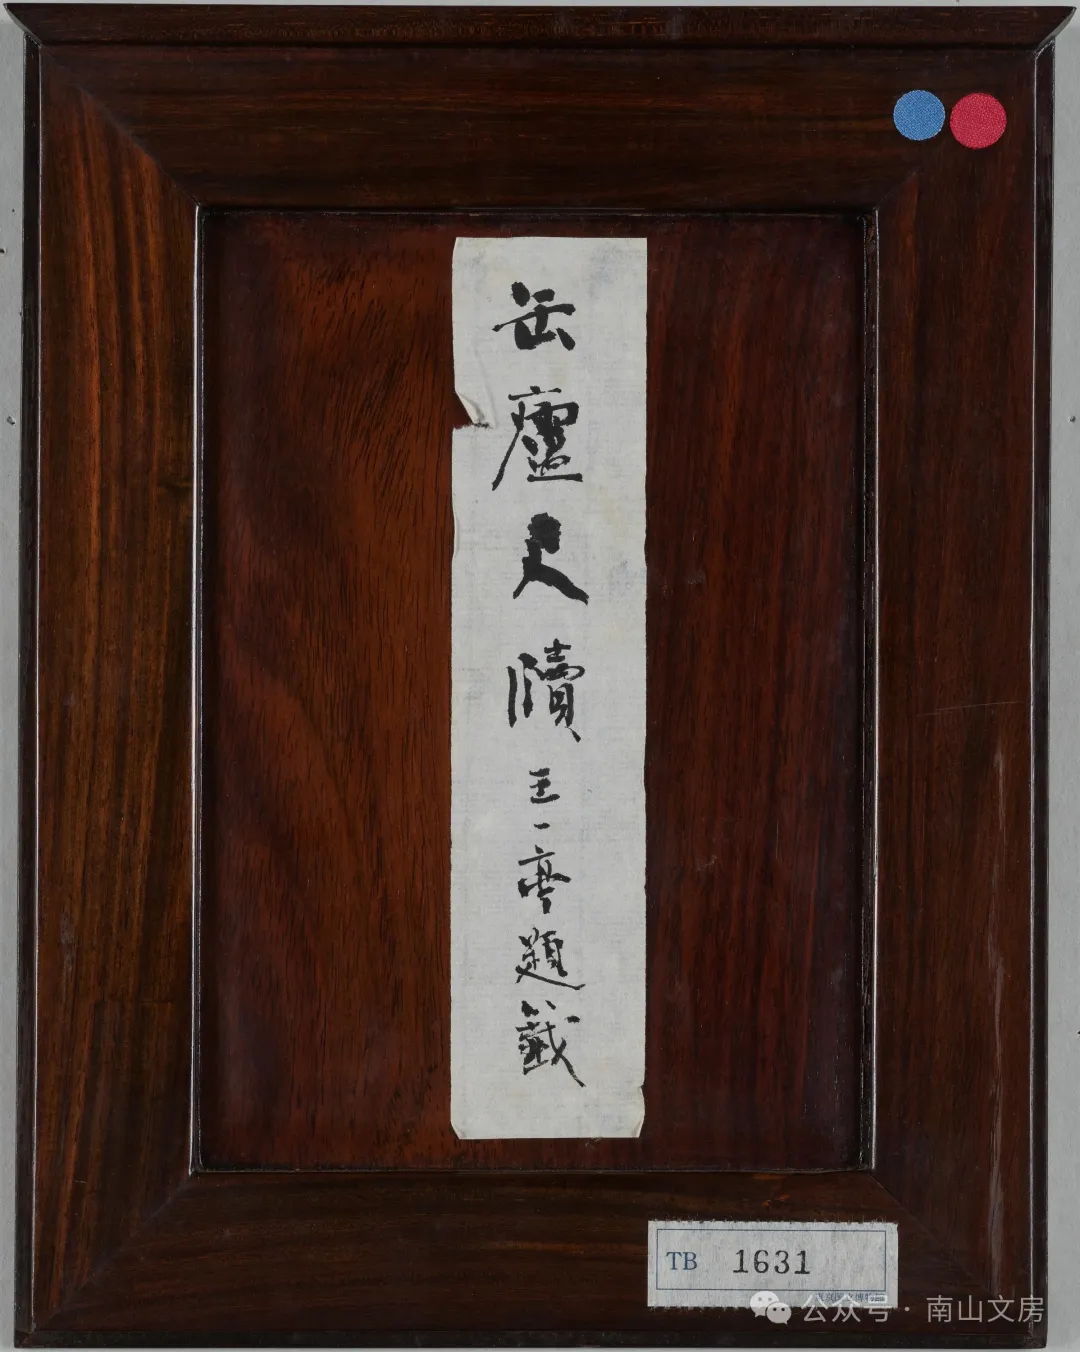 缶廬尺牘 王一亭題籤
TB 1631
公众号 · 南山文房